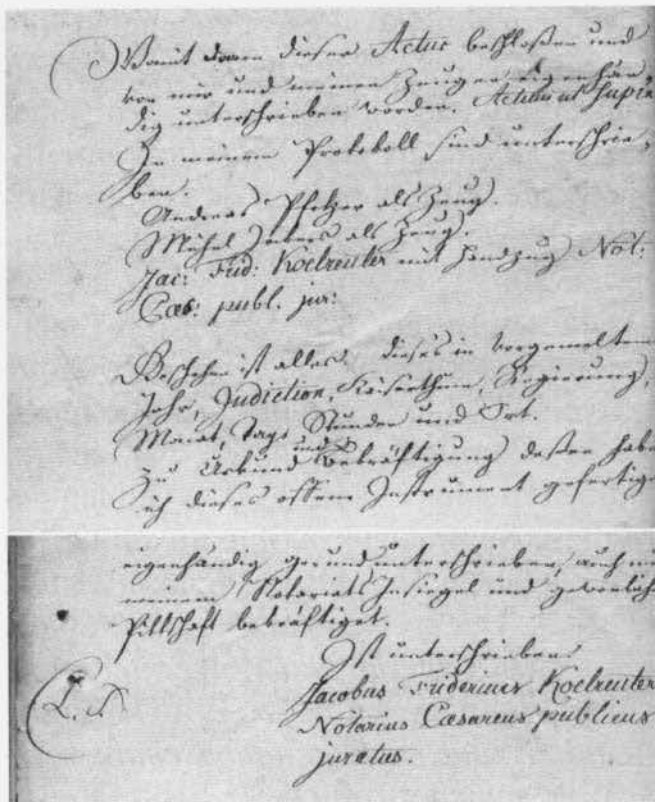 Womit dann dieser Actus beschloßen und
von mir und meinen Zeugen eigenhän-
dig unterschrieben worden. Actum ut supra
In meinem Protokoll sind unterschrie-
ben.
Andreas Pfitzer als Zeug.
Michel als Zeug.
Jac: Frid: Koelreuter mit Handzug Not:
Caes: publ. jur:
Beschehen ist alles dieses in vorgemeltem
Jahr, Indiction, Kaiserthum, Regierung,
Monat, Tags Stunden und Ort.
Zu Urkund und Bekräftigung deßen habe
ich dieses offene Instrument gefertigt
eigenhändig ge- und unterschrieben, auch mit
meinem Notariats Insiegel und gewohnlich
Pittschaft bekräftiget.
Ist unterschrieben
L. S.
Jacobus Fridericus Koelreuter
Notarius Caesareus publicus
juratus.